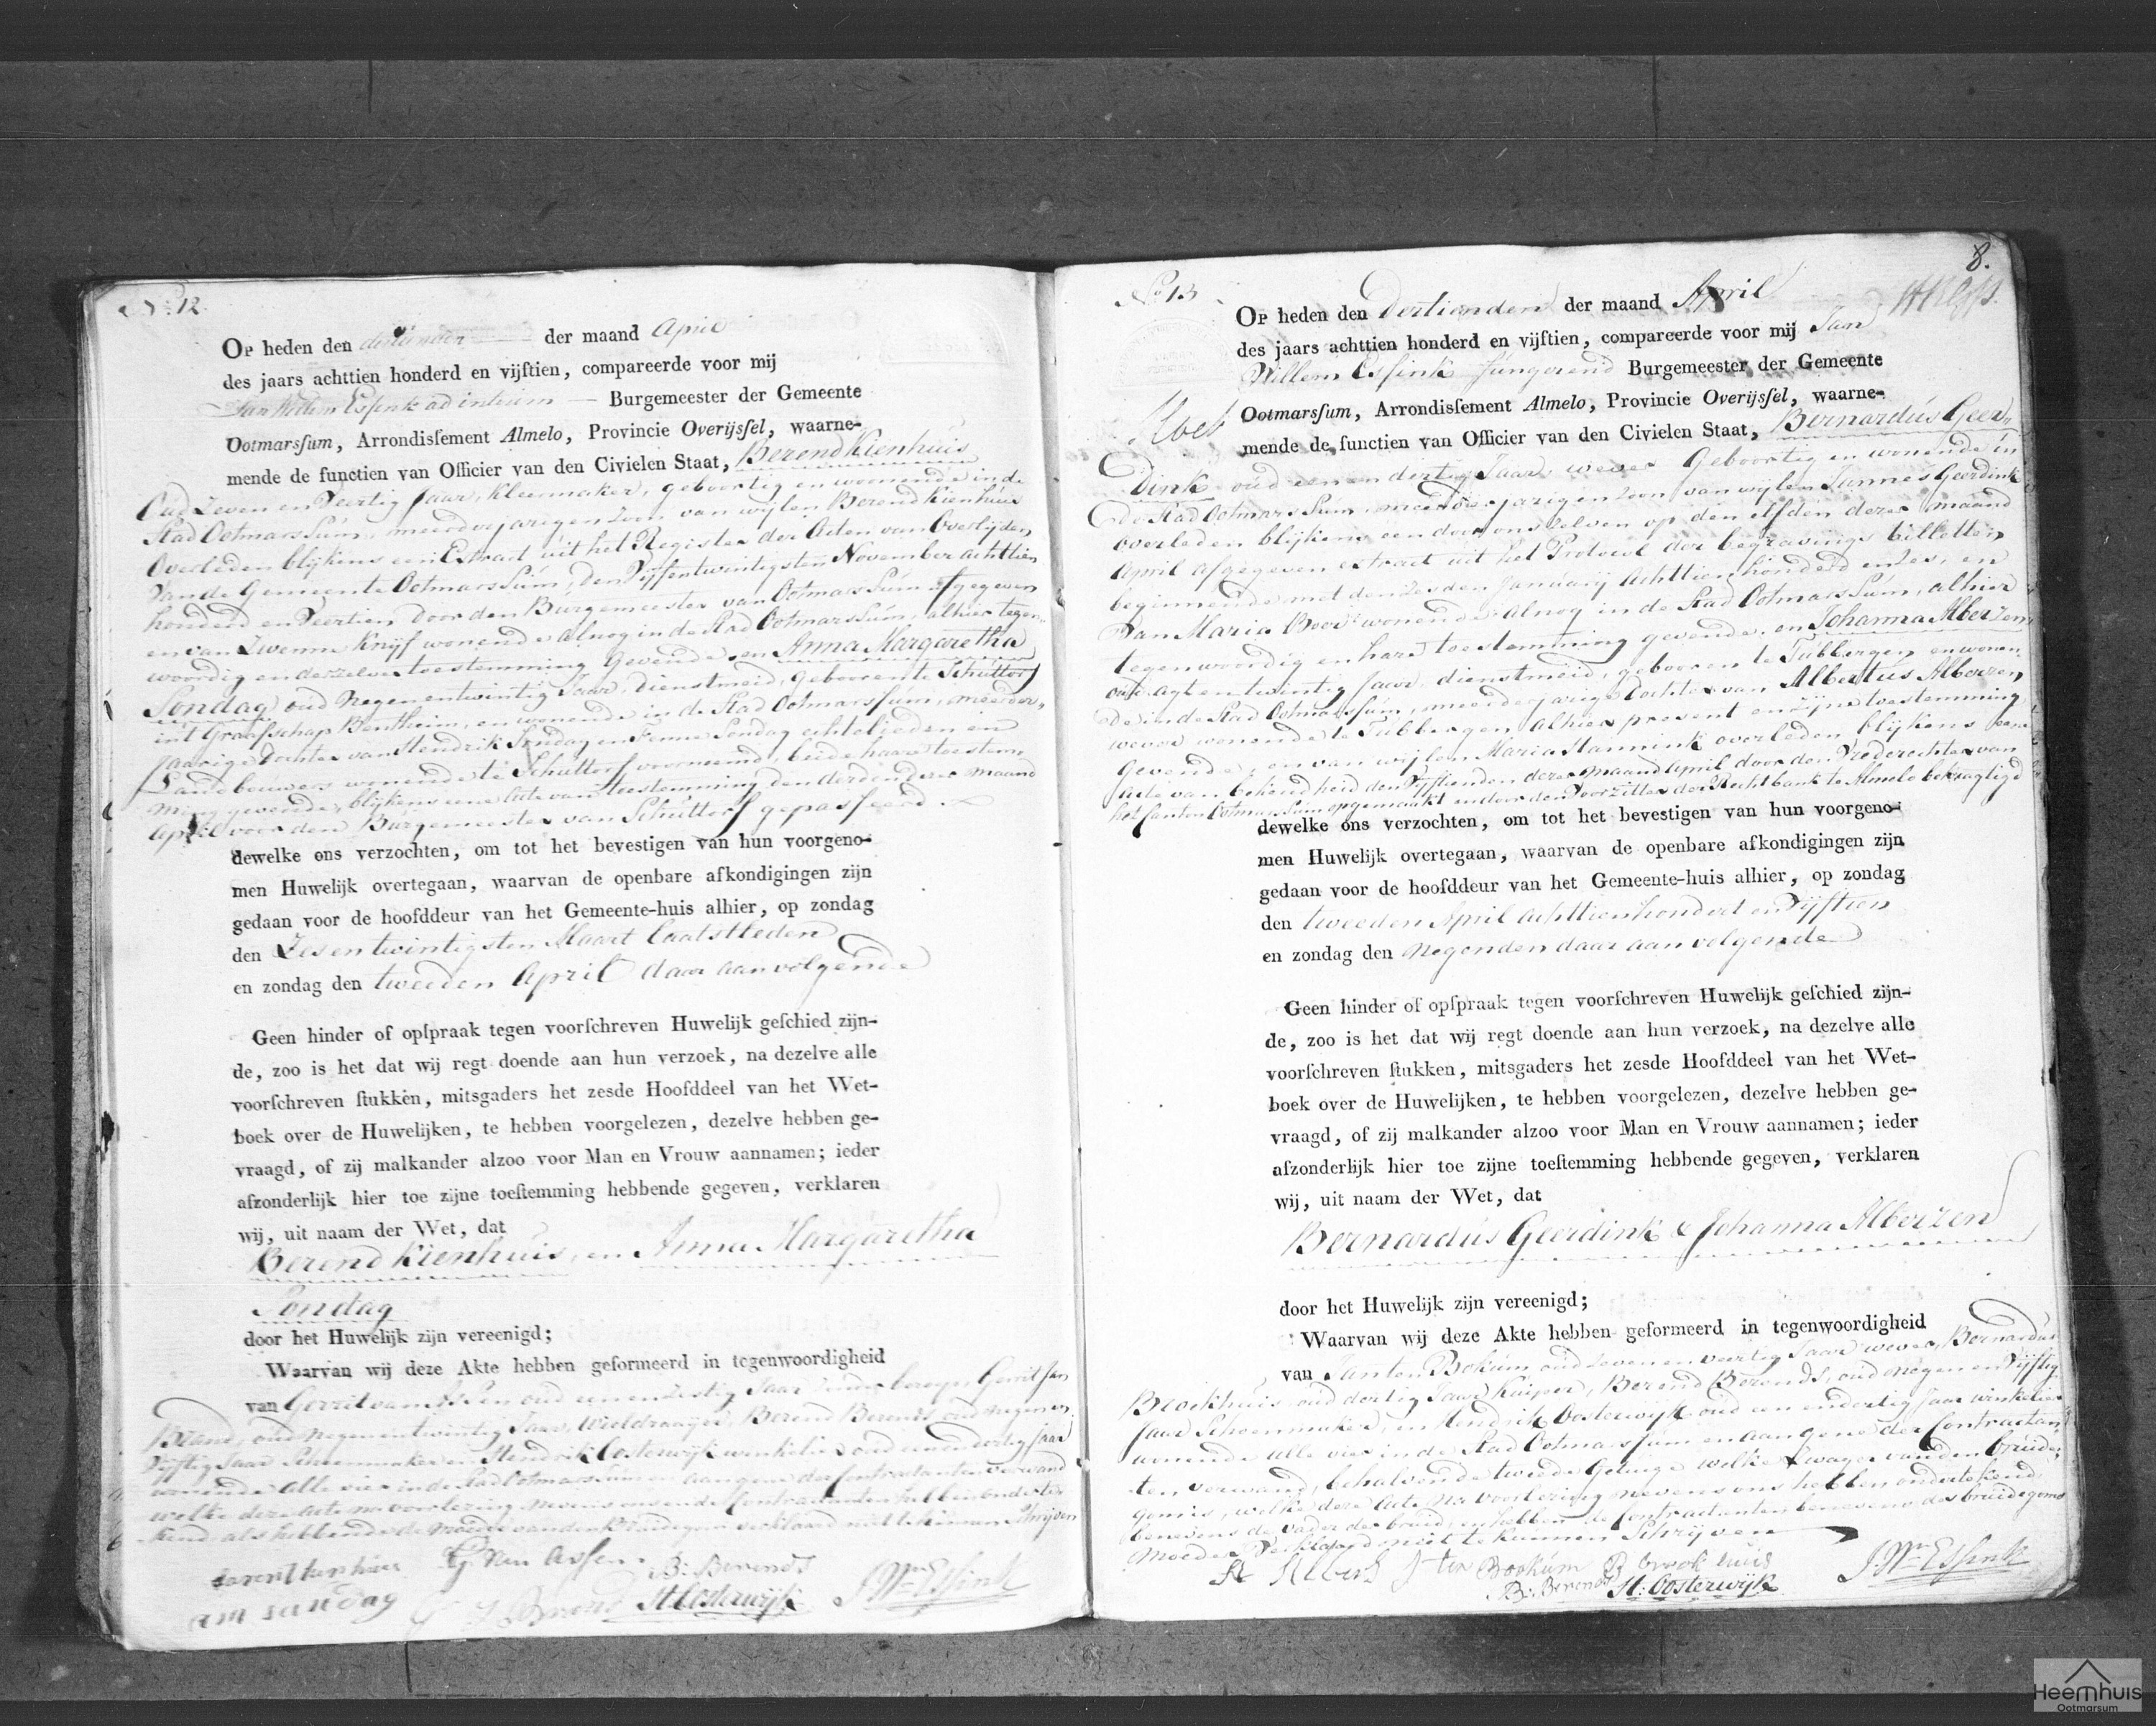 No. 12.
Op heden den dertienden der maand April
des jaars achttien honderd en vijftien, compareerde voor mij
Jan Willem Essink ad interim — Burgemeester der Gemeente
Ootmarsſum, Arrondisſement Almelo, Provincie Overijsſel, waarne-
mende de functien van Officier van den Civielen Staat, Berend Kienhuis
Oud Zeven en Veertig Jaar, Kleermaker, geboortig en woonende in de
Stad OotmarsSum, meerderjarigen Zoon van wijlen Berend Kienhuis
Overleden blijkens een Extract uit het Register der Acten van Overlijden
van de Gemeente OotmarsSum, den Vijfentwintigsten November achttien
honderd en Veertien door den Burgemeester van OotmarsSum afgegeven
en van Zwenne Knijf wonende alnog in de Stad OotmarsSum, alhier tegen-
woordig en derzelver toestemming Gevende en Anna Margaretha
Sondag oud Negen en twintig Jaar, Dienstmeid, geboren te Schuttorf
int Graafschap Bentheim, en wonende in de Stad Ootmarsſum, meerder-
jaarige Dochter van Hendrik Sondag en Fenne Sondag echtelieden en
Landbouwers wonende te Schuttorf voornoemd, beide haare toestem-
ming gevende, blijkens eene Acte van toestemming den derden dezer maand
April voor den Burgemeester van Schuttorf gepasseerd.
dewelke ons verzochten, om tot het bevestigen van hun voorgeno-
men Huwelijk overtegaan, waarvan de openbare afkondigingen zijn
gedaan voor de hoofddeur van het Gemeente-huis alhier, op zondag
den Zesentwintigsten Maart laatstleden
en zondag den tweeden April daar aanvolgende
Geen hinder of opſpraak tegen voorſchreven Huwelijk geſchied zijn-
de, zoo is het dat wij regt doende aan hun verzoek, na dezelve alle
voorſchreven ſtukken, mitsgaders het zesde Hoofddeel van het Wet-
boek over de Huwelijken, te hebben voorgelezen, dezelve hebben ge-
vraagd, of zij malkander alzoo voor Man en Vrouw aannamen; ieder
afzonderlijk hier toe zijne toeſtemming hebbende gegeven, verklaren
wij, uit naam der Wet, dat
Berend Kienhuis, en Anna Margaretha
Sondag
door het Huwelijk zijn vereenigd;
Waarvan wij deze Akte hebben geformeerd in tegenwoordigheid
van Gerrit van Assen oud een en Zestig Jaar Gerrit Jan
Brand, oud Negenentwintig Jaar, Wieldraaijer, Berend Berends, oud Negen en
Vijftig Jaar Schoenmaker en Hendrik Oosterwijk winkelier oud eenendertig Jaar
wonende alle vier in de Stad OotmarsSum en aan gene der Contractanten verwand
welke deze Acte na voorlezing nevens ons en de Contractanten hebben onderte-
kend als hebbende de Moeder van den Bruidegom verklaard niet te kunnen Schrijven
G van Assen B: Berends
am sandag H: Oosterwijk J. Wm Essink
8.
No. 13
Op heden den Dertienden der maand April
des jaars achttien honderd en vijftien, compareerde voor mij Jan
Willem Essink fungerend Burgemeester der Gemeente
Ootmarsſum, Arrondisſement Almelo, Provincie Overijsſel, waarne-
mende de functien van Officier van den Civielen Staat, Bernardus Geer-
Dink oud een en dertig Jaar wever Geboortig en wonende in
de Stad OotmarsSum, meerderjarigen Zoon van wijlen Jannes Geerdink
overleden blijkens een door ons Zelven op den Elfden dezer maand
April afgegeven extract uit het Protocol der begravings billetten
beginnende met den Zesden Januarij Achttien honderd en Zes, en
van Maria Boer wonende alnog in de Stad OotmarsSum, alhier
tegenwoordig en hare toestemming gevende, en Johanna Alberzen
oud agt en twintig Jaar dienstmeid, gebooren te Tubbergen en wonen-
de in de Stad Ootmarsſum, meerderjarige Dochter van Albertus Alberzen
wever wonende te Tubbergen, alhier present en zijne toestemming
Gevende, en van wijlen Maria Hannink overleden blijkens eene
Acte van bekendheid den Vijftienden dezer Maand April door den Vrederechter van
het Canton OotmarsSum opgemaakt en door den Voorzitter der Rechtbank te Almelo bekragtigd
dewelke ons verzochten, om tot het bevestigen van hun voorgeno-
men Huwelijk overtegaan, waarvan de openbare afkondigingen zijn
gedaan voor de hoofddeur van het Gemeente-huis alhier, op zondag
den tweeden April achttienhonderd en Vijftien
en zondag den Negenden daar aan volgende
Geen hinder of opſpraak tegen voorſchreven Huwelijk geſchied zijn-
de, zoo is het dat wij regt doende aan hun verzoek, na dezelve alle
voorſchreven ſtukken, mitsgaders het zesde Hoofddeel van het Wet-
boek over de Huwelijken, te hebben voorgelezen, dezelve hebben ge-
vraagd, of zij malkander alzoo voor Man en Vrouw aannamen; ieder
afzonderlijk hier toe zijne toeſtemming hebbende gegeven, verklaren
wij, uit naam der Wet, dat
Bernardus Geerdink & Johanna Alberzen
door het Huwelijk zijn vereenigd;
Waarvan wij deze Akte hebben geformeerd in tegenwoordigheid
van Jan ten Bokum oud Zeven en veertig Jaar wever, Bernardus
Broekhuis oud dertig Jaar Kuiper, Berend Berends, oud Negen en Vijftig
Jaar Schoenmaker, en Hendrik Oosterwijk oud een en dertig Jaar winkelier
wonende alle vier in de Stad Ootmarsſum en aan gene der Contractan-
ten, verwand, behalven de tweede Getuige welke Swager van den bruide-
gom is, welke deze Acte Na Voorlezing nevens ons hebben ondertekend
benevens de Vader der bruid, en hebben de Contractanten benevens des bruidegoms
Moeder Verklaard niet te kunnen Schrijven
J ten Bookum B brookhuis
B: Berends H: Oosterwijk J. Wm Essink
Heemhuis
Ootmarsum